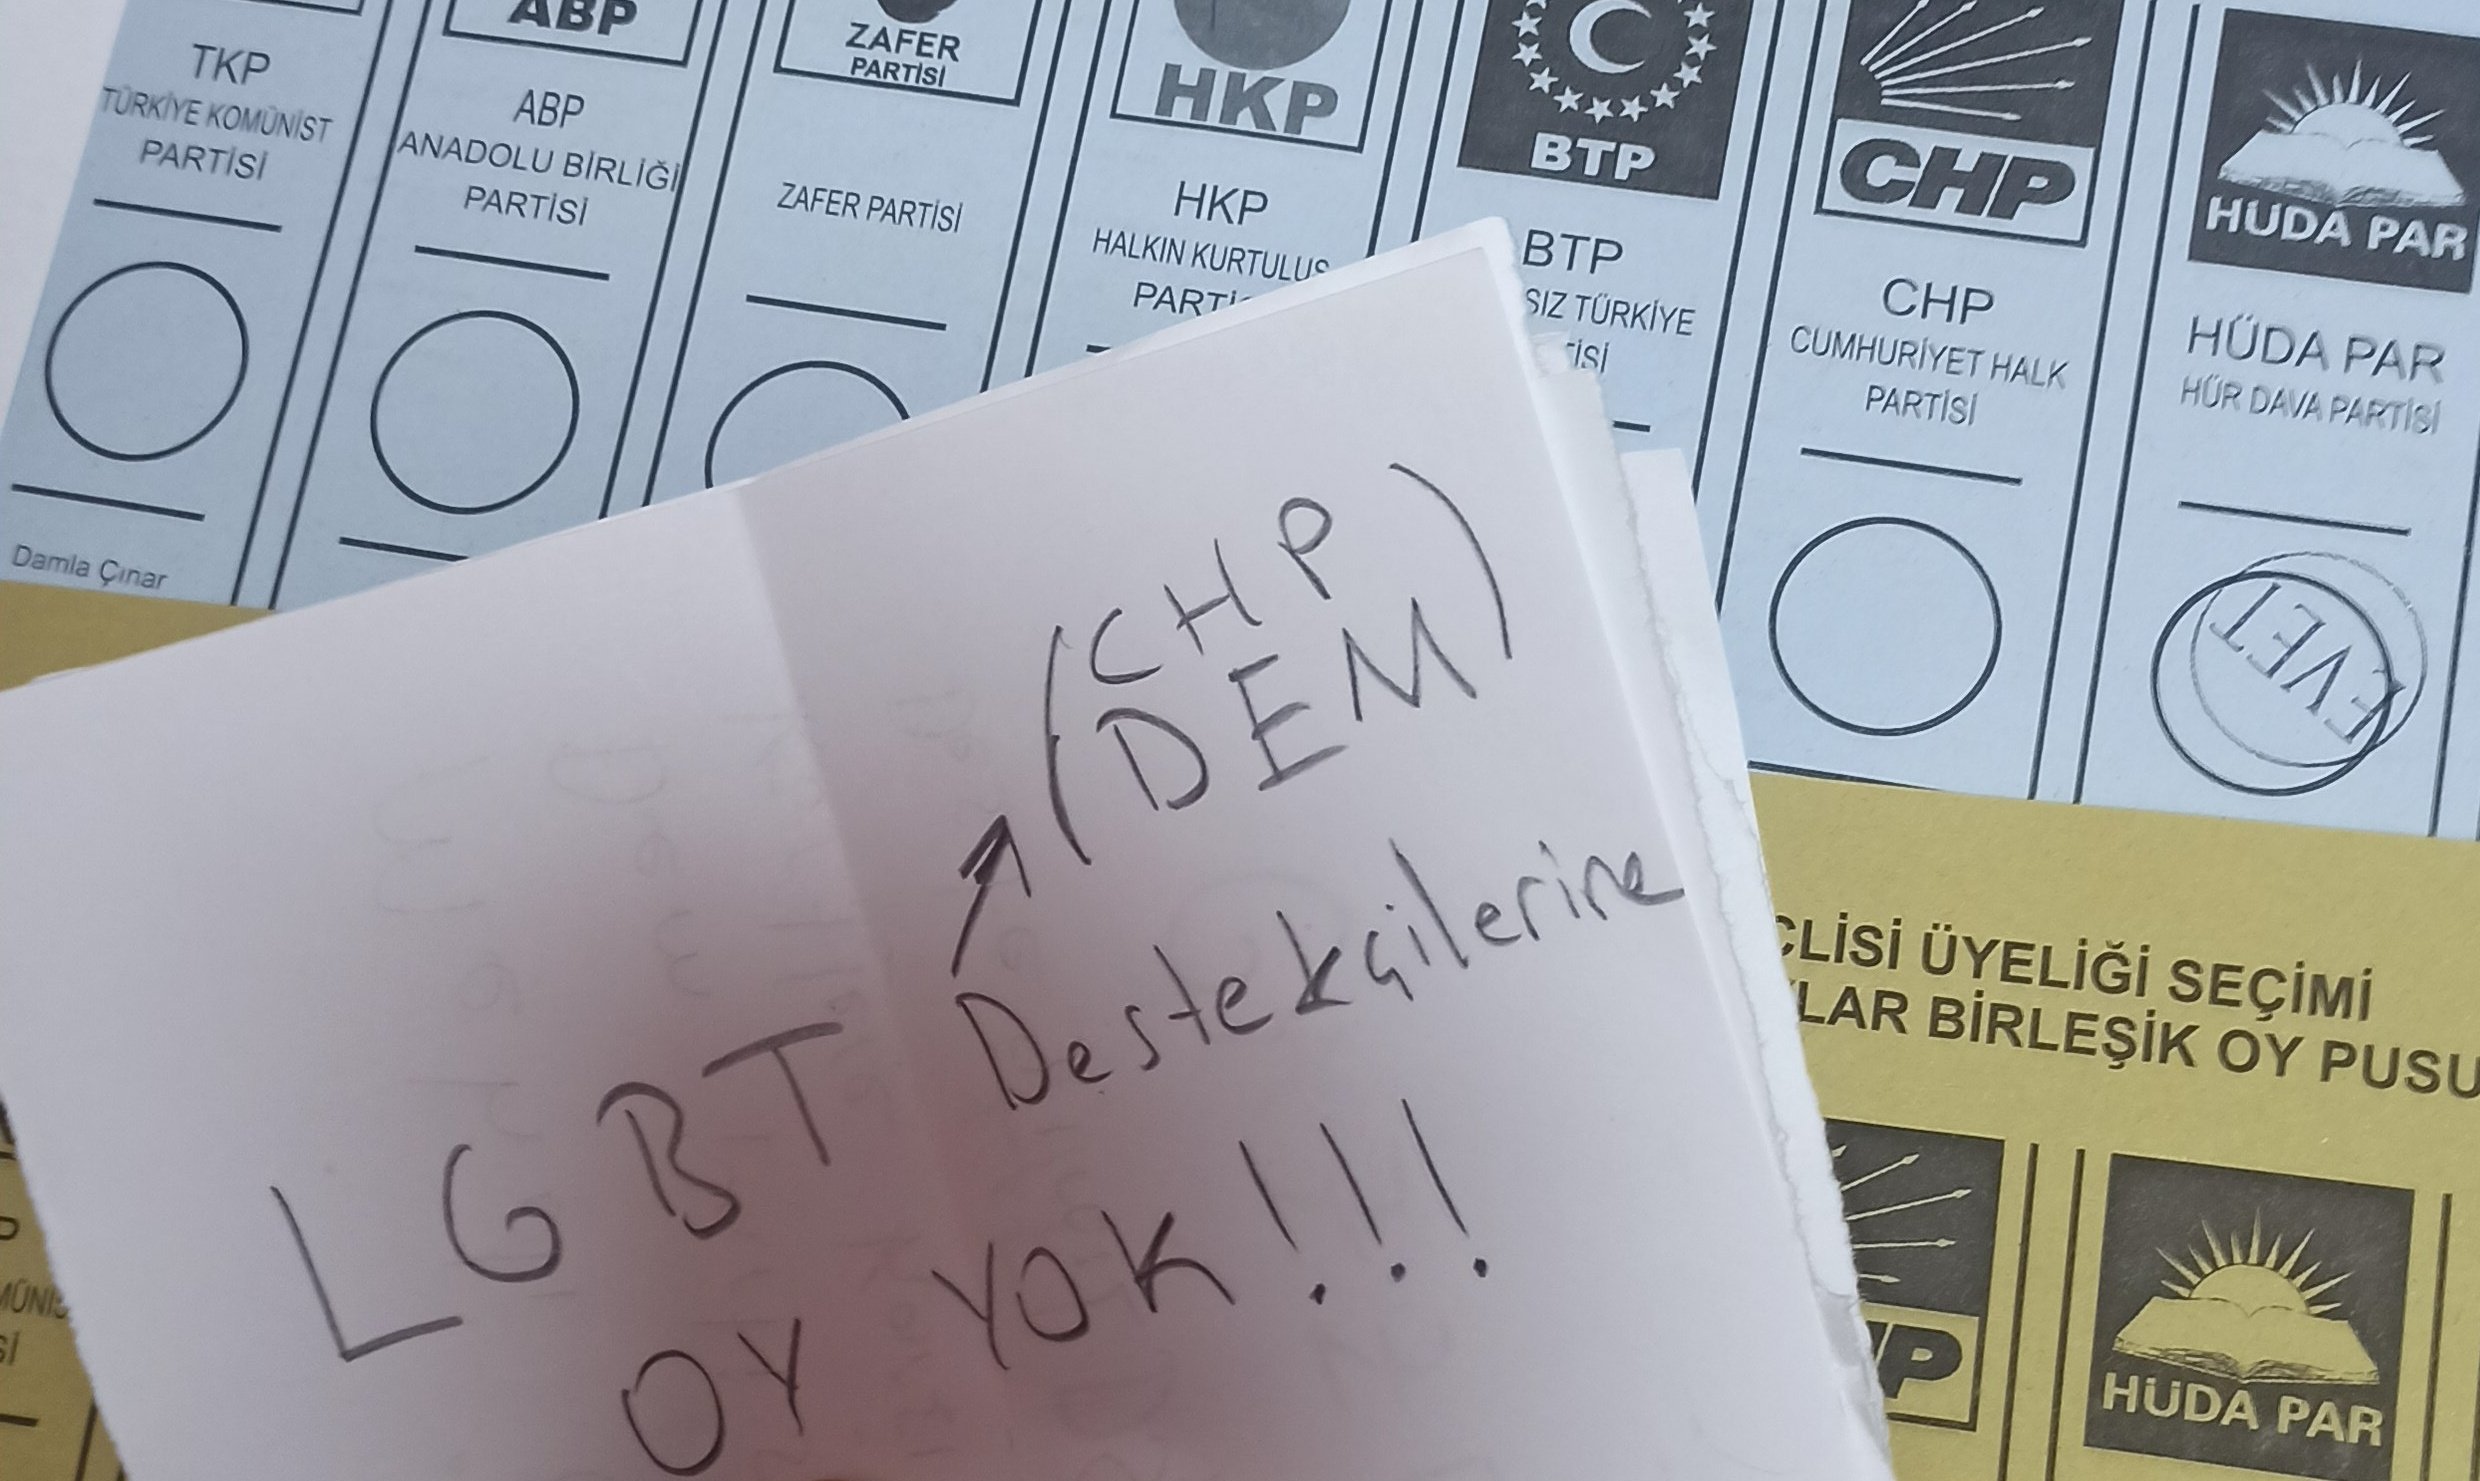 ABP
ZAFER
PARTİSİ
HKP
BTP
CHP
HÜDA PAR
TKP
TÜRKİYE KOMÜNİST
PARTİSİ
ABP
ANADOLU BİRLİĞİ
PARTİSİ
ZAFER PARTİSİ
HKP
HALKIN KURTULUŞ
BTP
SIZ TÜRKİYE
CHP
CUMHURİYET HALK
PARTİSİ
HÜDA PAR
HÜR DAVA PARTİSİ
EVET
Damla Çınar
(CHP
DEM)
LGBT Destekçilerine
OY YOK!!!
CLİSİ ÜYELİĞİ SEÇİMİ
LAR BİRLEŞİK OY PUSU
HÜDA PAR